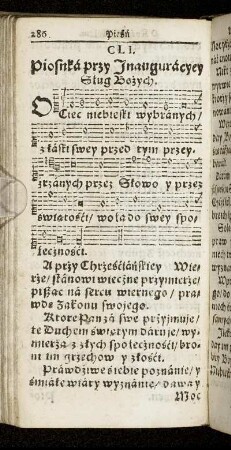 286 Pieśń
CLI.
Piosnka przy Inauguracyey
Sług Bożych.
OCiec niebieski wybranych/
z łáski swey przed tym przey-
zrzanych przez Słowo y przez
świątośći/ woła do swey spo-
łecznośći.
A przy Chrześćiáńskiey Wie-
rze/ stánowi wieczne przymierze/
pisząc ná sercu wiernego/ pra-
wdę Zakonu swojego.
Ktore Pan zá swe przyjmuje/
te Duchem świętym dáruje/ wy-
mierza z złych społecznośći/ bro-
ni im grzechow y złośći.
Prawdźiwe śiebie poznánie/ y
śmiáłe wiáry wyznánie/ dáwa y
Moc